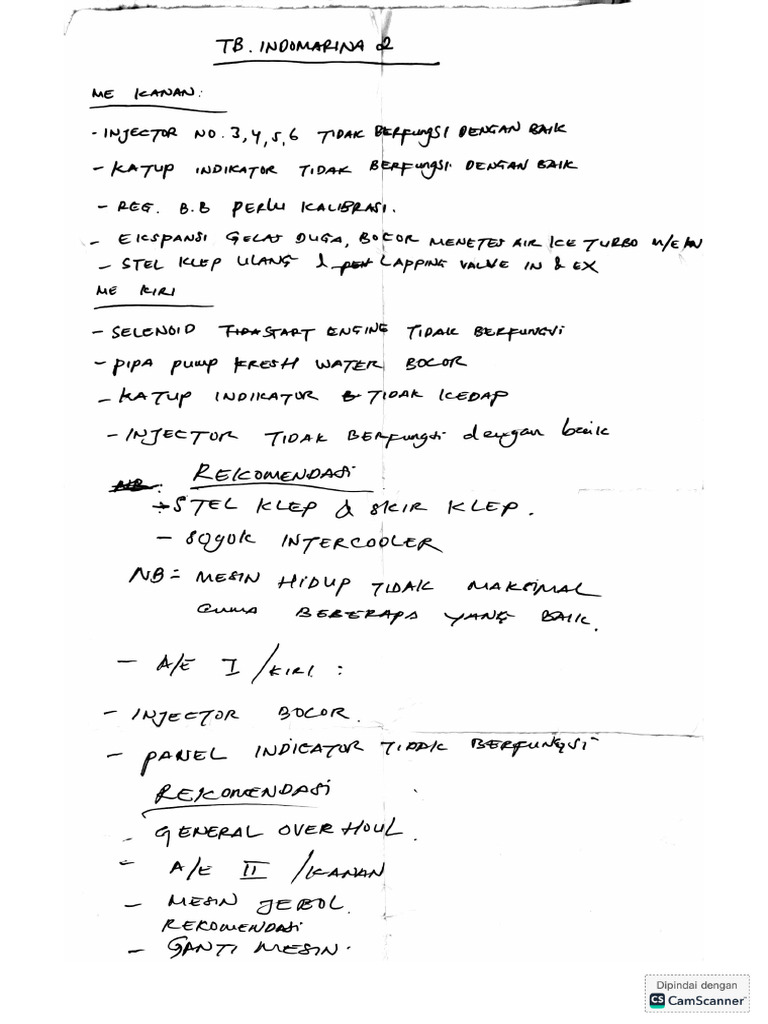 TB. INDOMARINA 2
ME KANAN:
- INJECTOR NO. 3, 4, 5, 6 TIDAK BERFUNGSI DENGAN BAIK
- KATUP INDIKATOR TIDAK BERFUNGSI DENGAN BAIK
- REG. B.B PERLU KALIBRASI.
- EKSPANSI GELAS DUGA, BOCOR MENETES AIR KE TURBO M/E KN
- STEL KLEP ULANG & LAPPING VALVE IN & EX
ME KIRI
- SELENOID START ENGINE TIDAK BERFUNGSI
- PIPA PUMP FRESH WATER BOCOR
- KATUP INDIKATOR TIDAK KEDAP
- INJECTOR TIDAK BERFUNGSI dengan baik
REKOMENDASI
- STEL KLEP & SKIR KLEP.
- SOGOK INTERCOOLER
NB = MESIN HIDUP TIDAK MAKSIMAL
CUMA BEBERAPA YANG BAIK.
- A/E I /KIRI :
- INJECTOR BOCOR.
- PANEL INDICATOR TIDAK BERFUNGSI
REKOMENDASI
- GENERAL OVER HOUL.
- A/E II /KANAN
- MESIN JEBOL.
REKOMENDASI
- GANTI MESIN.
Dipindai dengan
CS CamScanner